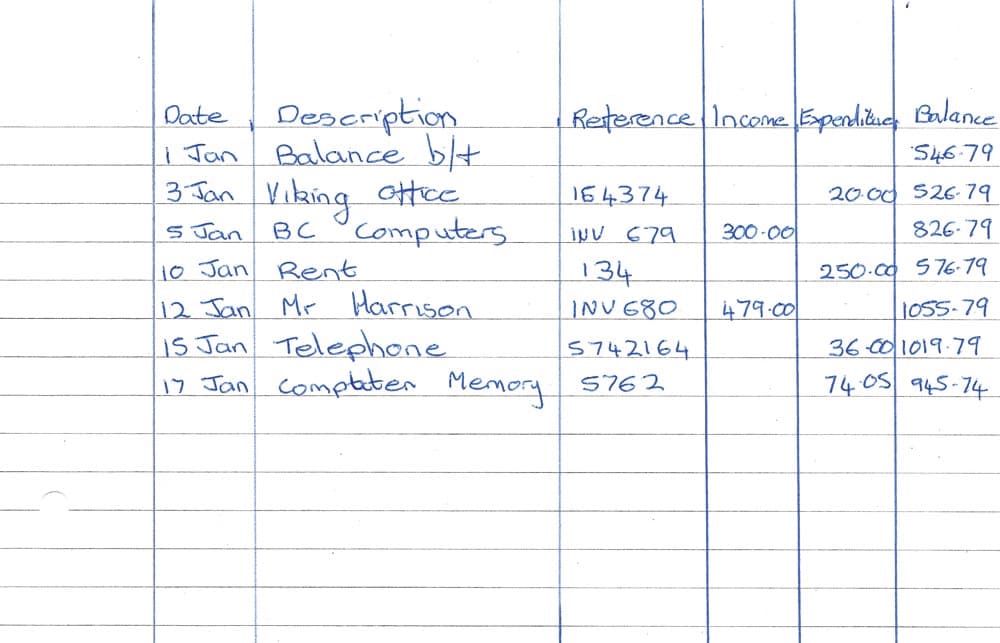 Date Description Reference Income Expenditure Balance
1 Jan Balance b/t 546.79
3 Jan Viking Office 154374 20.00 526.79
5 Jan BC Computers INV 679 300.00 826.79
10 Jan Rent 134 250.00 576.79
12 Jan Mr Harrison INV 680 479.00 1055.79
15 Jan Telephone 5742164 36.00 1019.79
17 Jan Computer Memory 5762 74.05 945.74